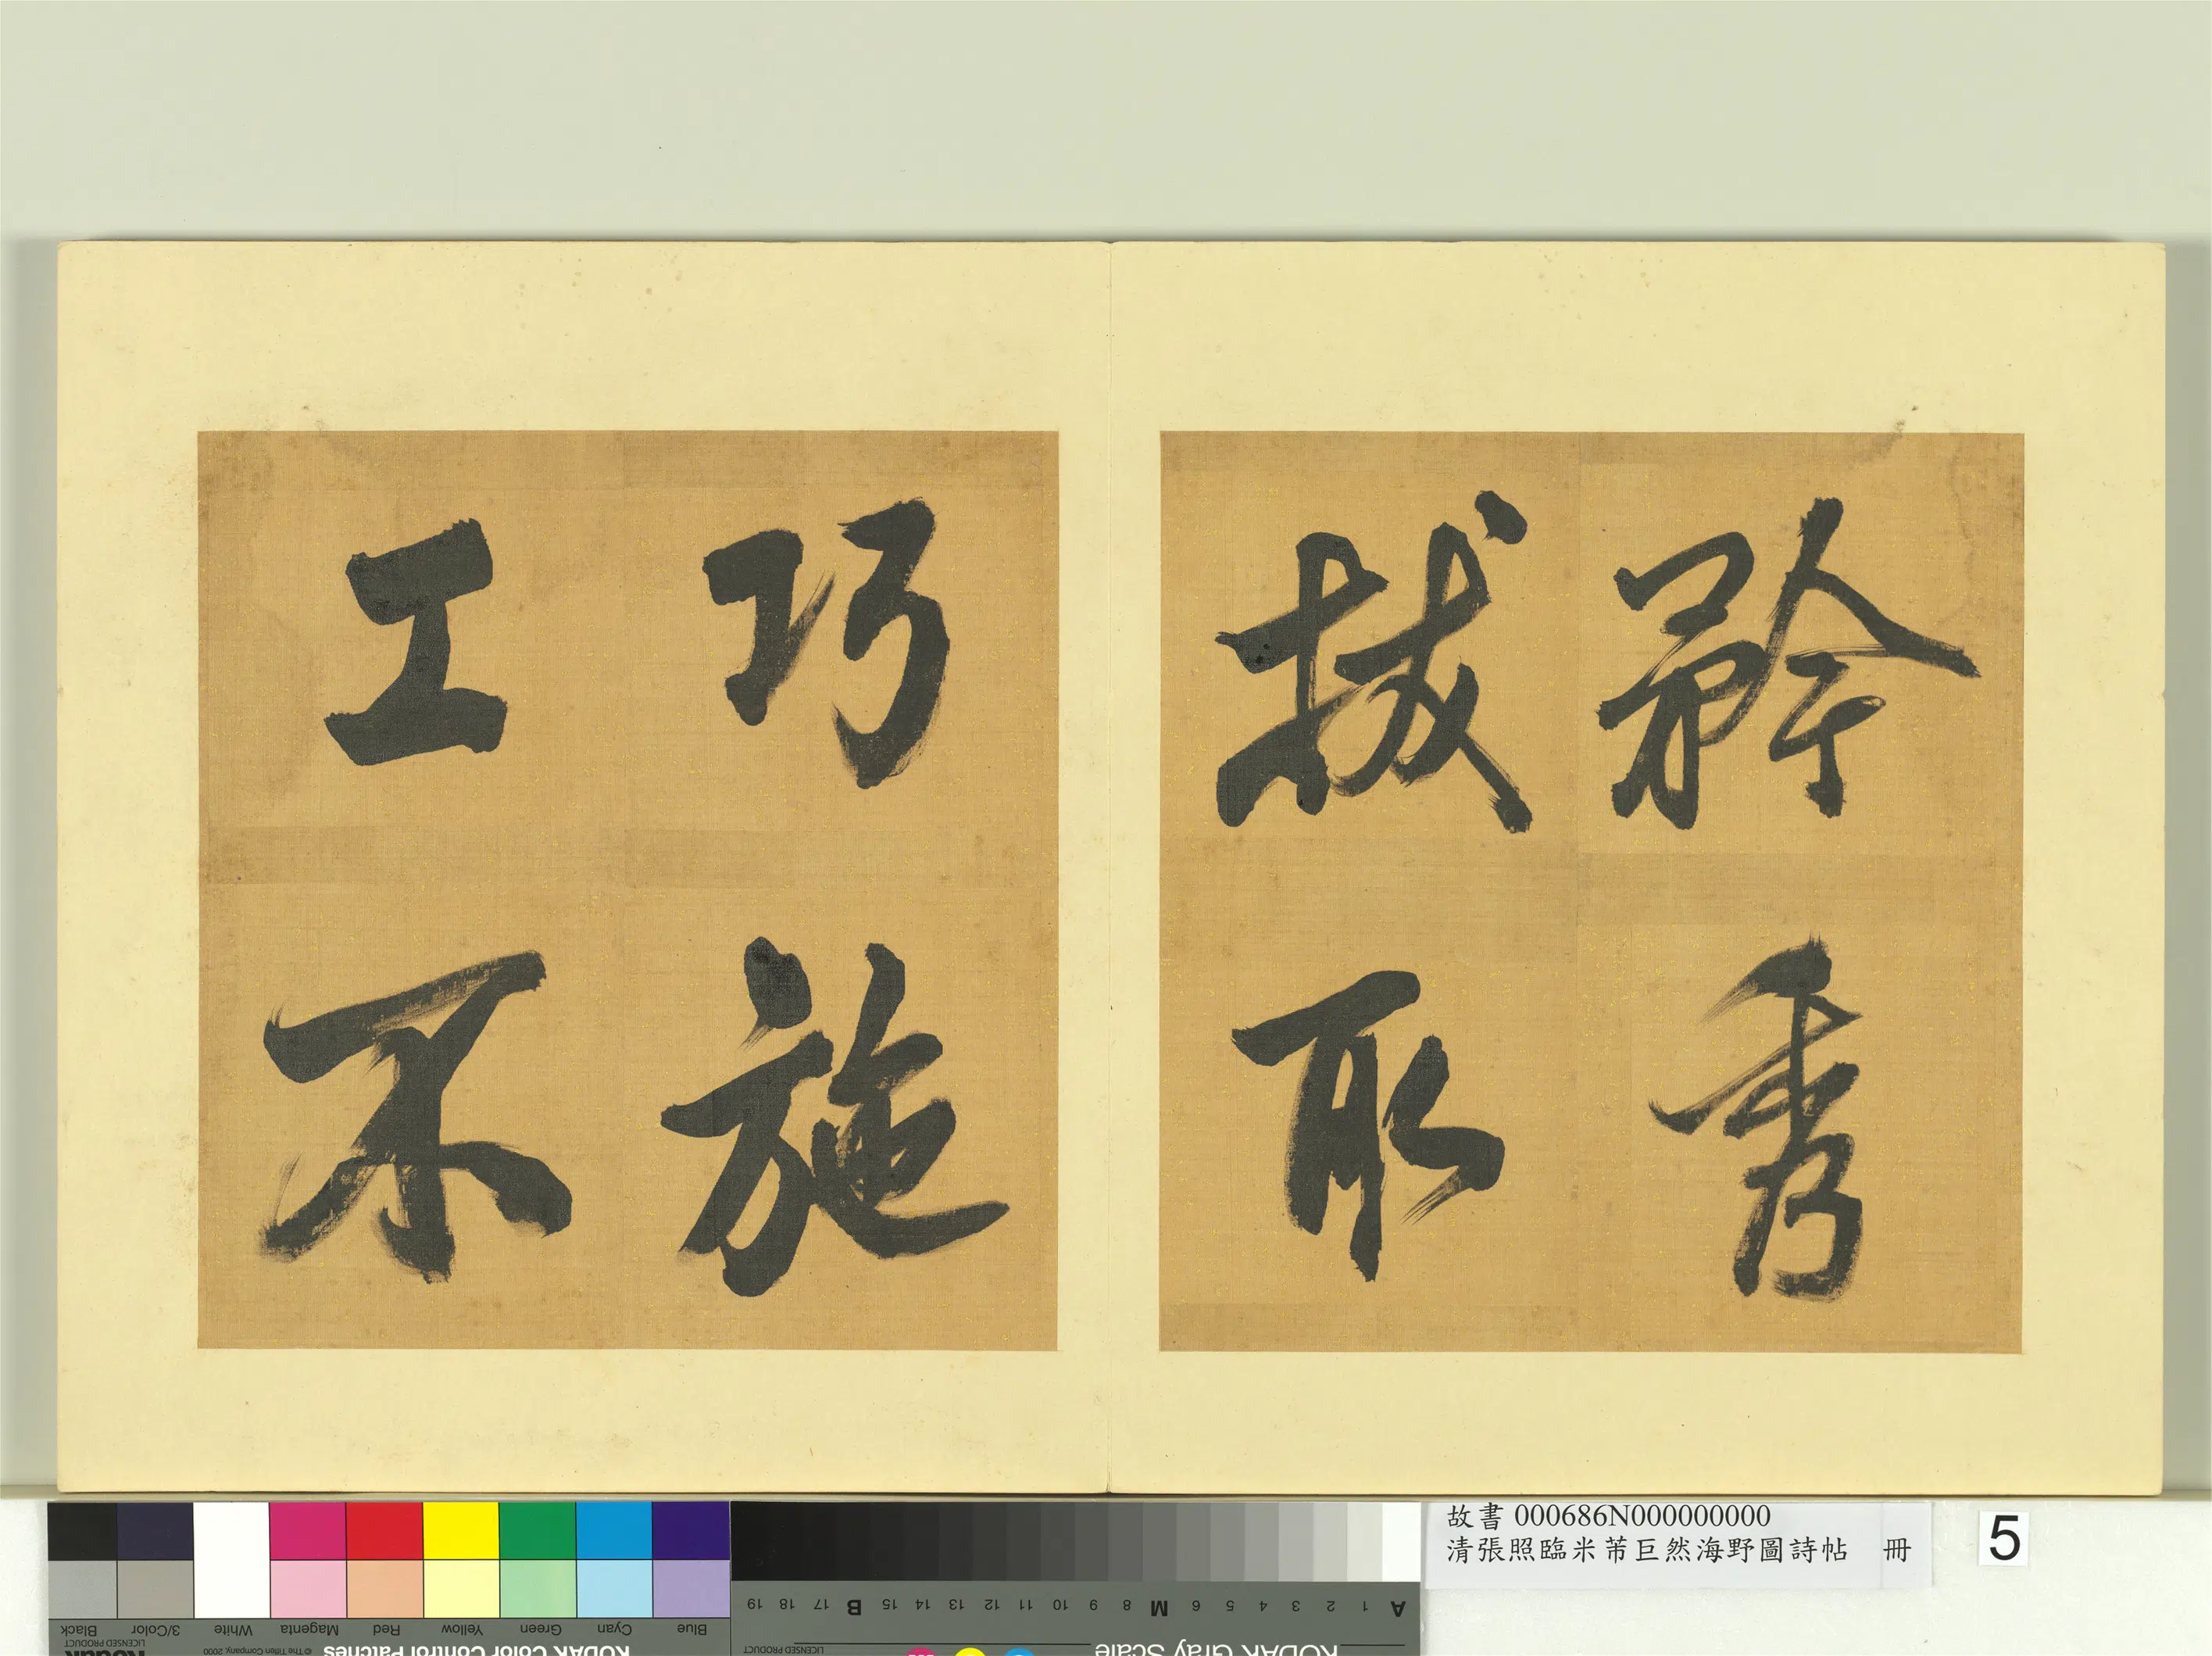 矜秀
拔取
巧施
工不
故書 000686N000000000
清張照臨米芾巨然海野圖詩帖 冊
5
Blue
Cyan
Green
Yellow
Red
Magenta
White
3/Color
Black
KODAK Color Control Patches
© The Tiffen Company, 2000
LICENSED PRODUCT
Kodak
A 1 2 3 4 5 6 M 8 9 10 11 12 13 14 15 B 17 18 19
KODAK Gray Scale
LICENSED PRODUCT